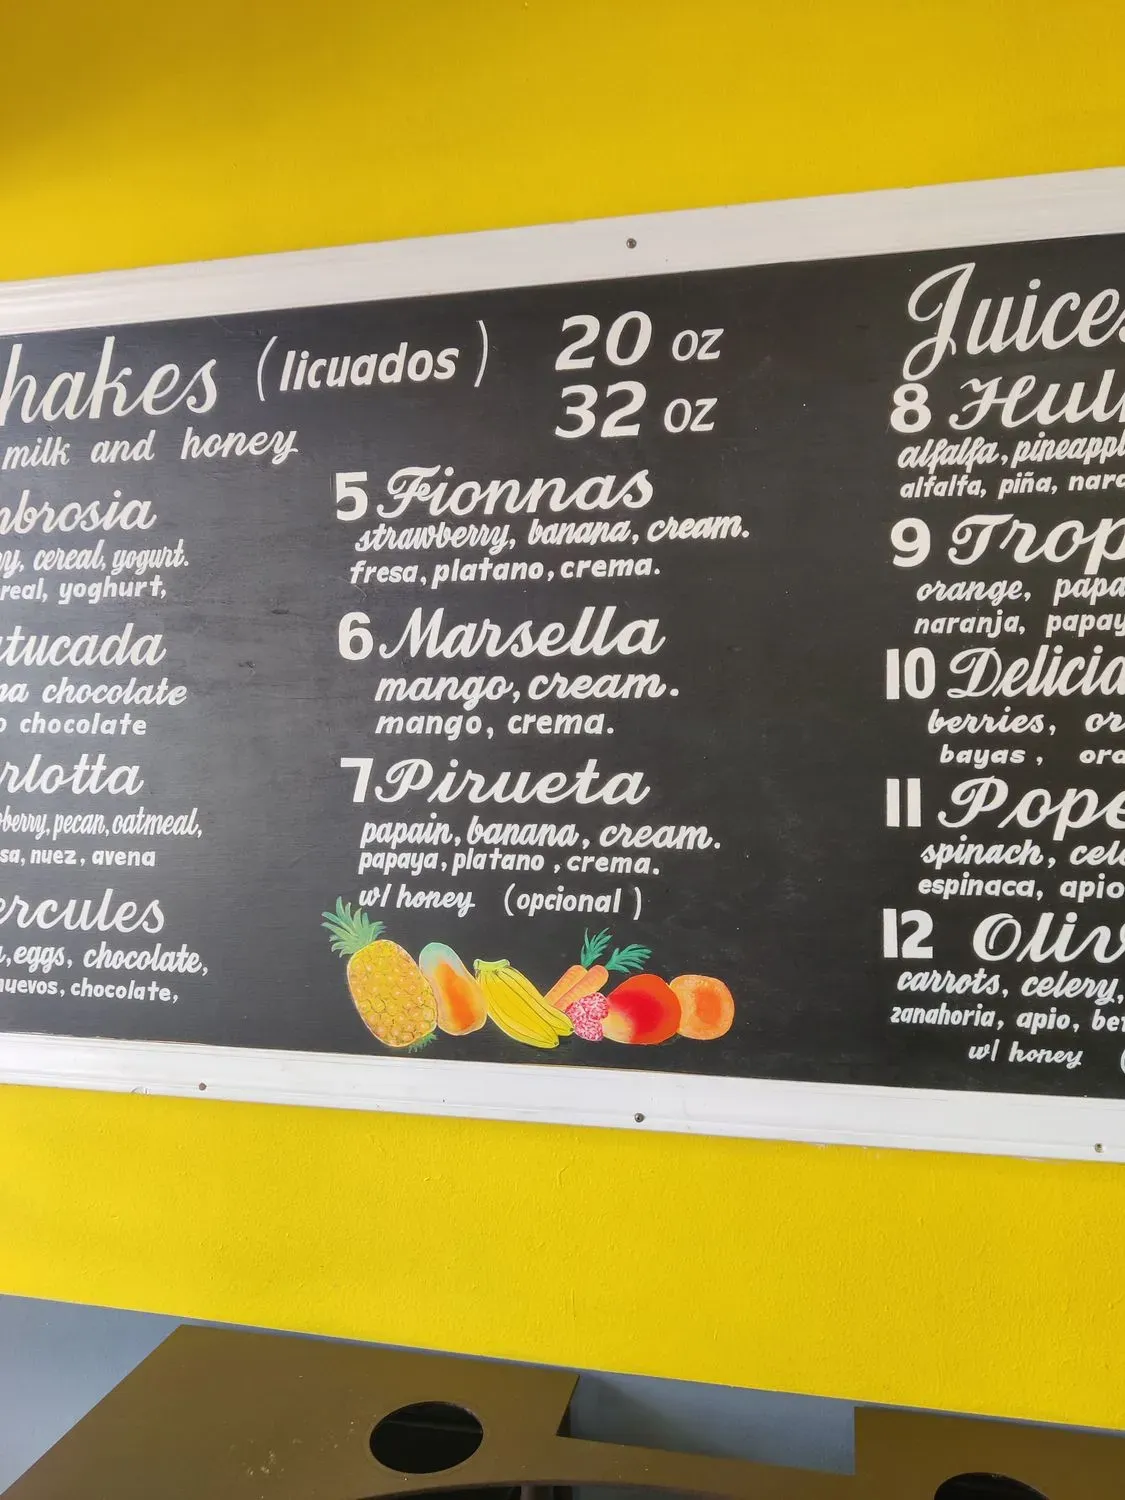 hakes (licuados) 20 oz
32 oz
milk and honey
mbrosia
cereal, yogurt.
real, yoghurt,
tucada
na chocolate
o chocolate
rlotta
berry, pecan, oatmeal,
sa, nuez, avena
ercules
, eggs, chocolate,
huevos, chocolate,
5 Fionnas
strawberry, banana, cream.
fresa, platano, crema.
6 Marsella
mango, cream.
mango, crema.
7 Pirueta
papain, banana, cream.
papaya, platano , crema.
w/ honey (opcional )
Juices
8 Hul
alfalfa, pineappl
alfalfa, piña, nara
9 Trop
orange, papa
naranja, papay
10 Delicia
berries, or
bayas , ora
11 Pope
spinach, cele
espinaca, apio
12 Oliv
carrots, celery,
zanahoria, apio, bet
w/ honey (